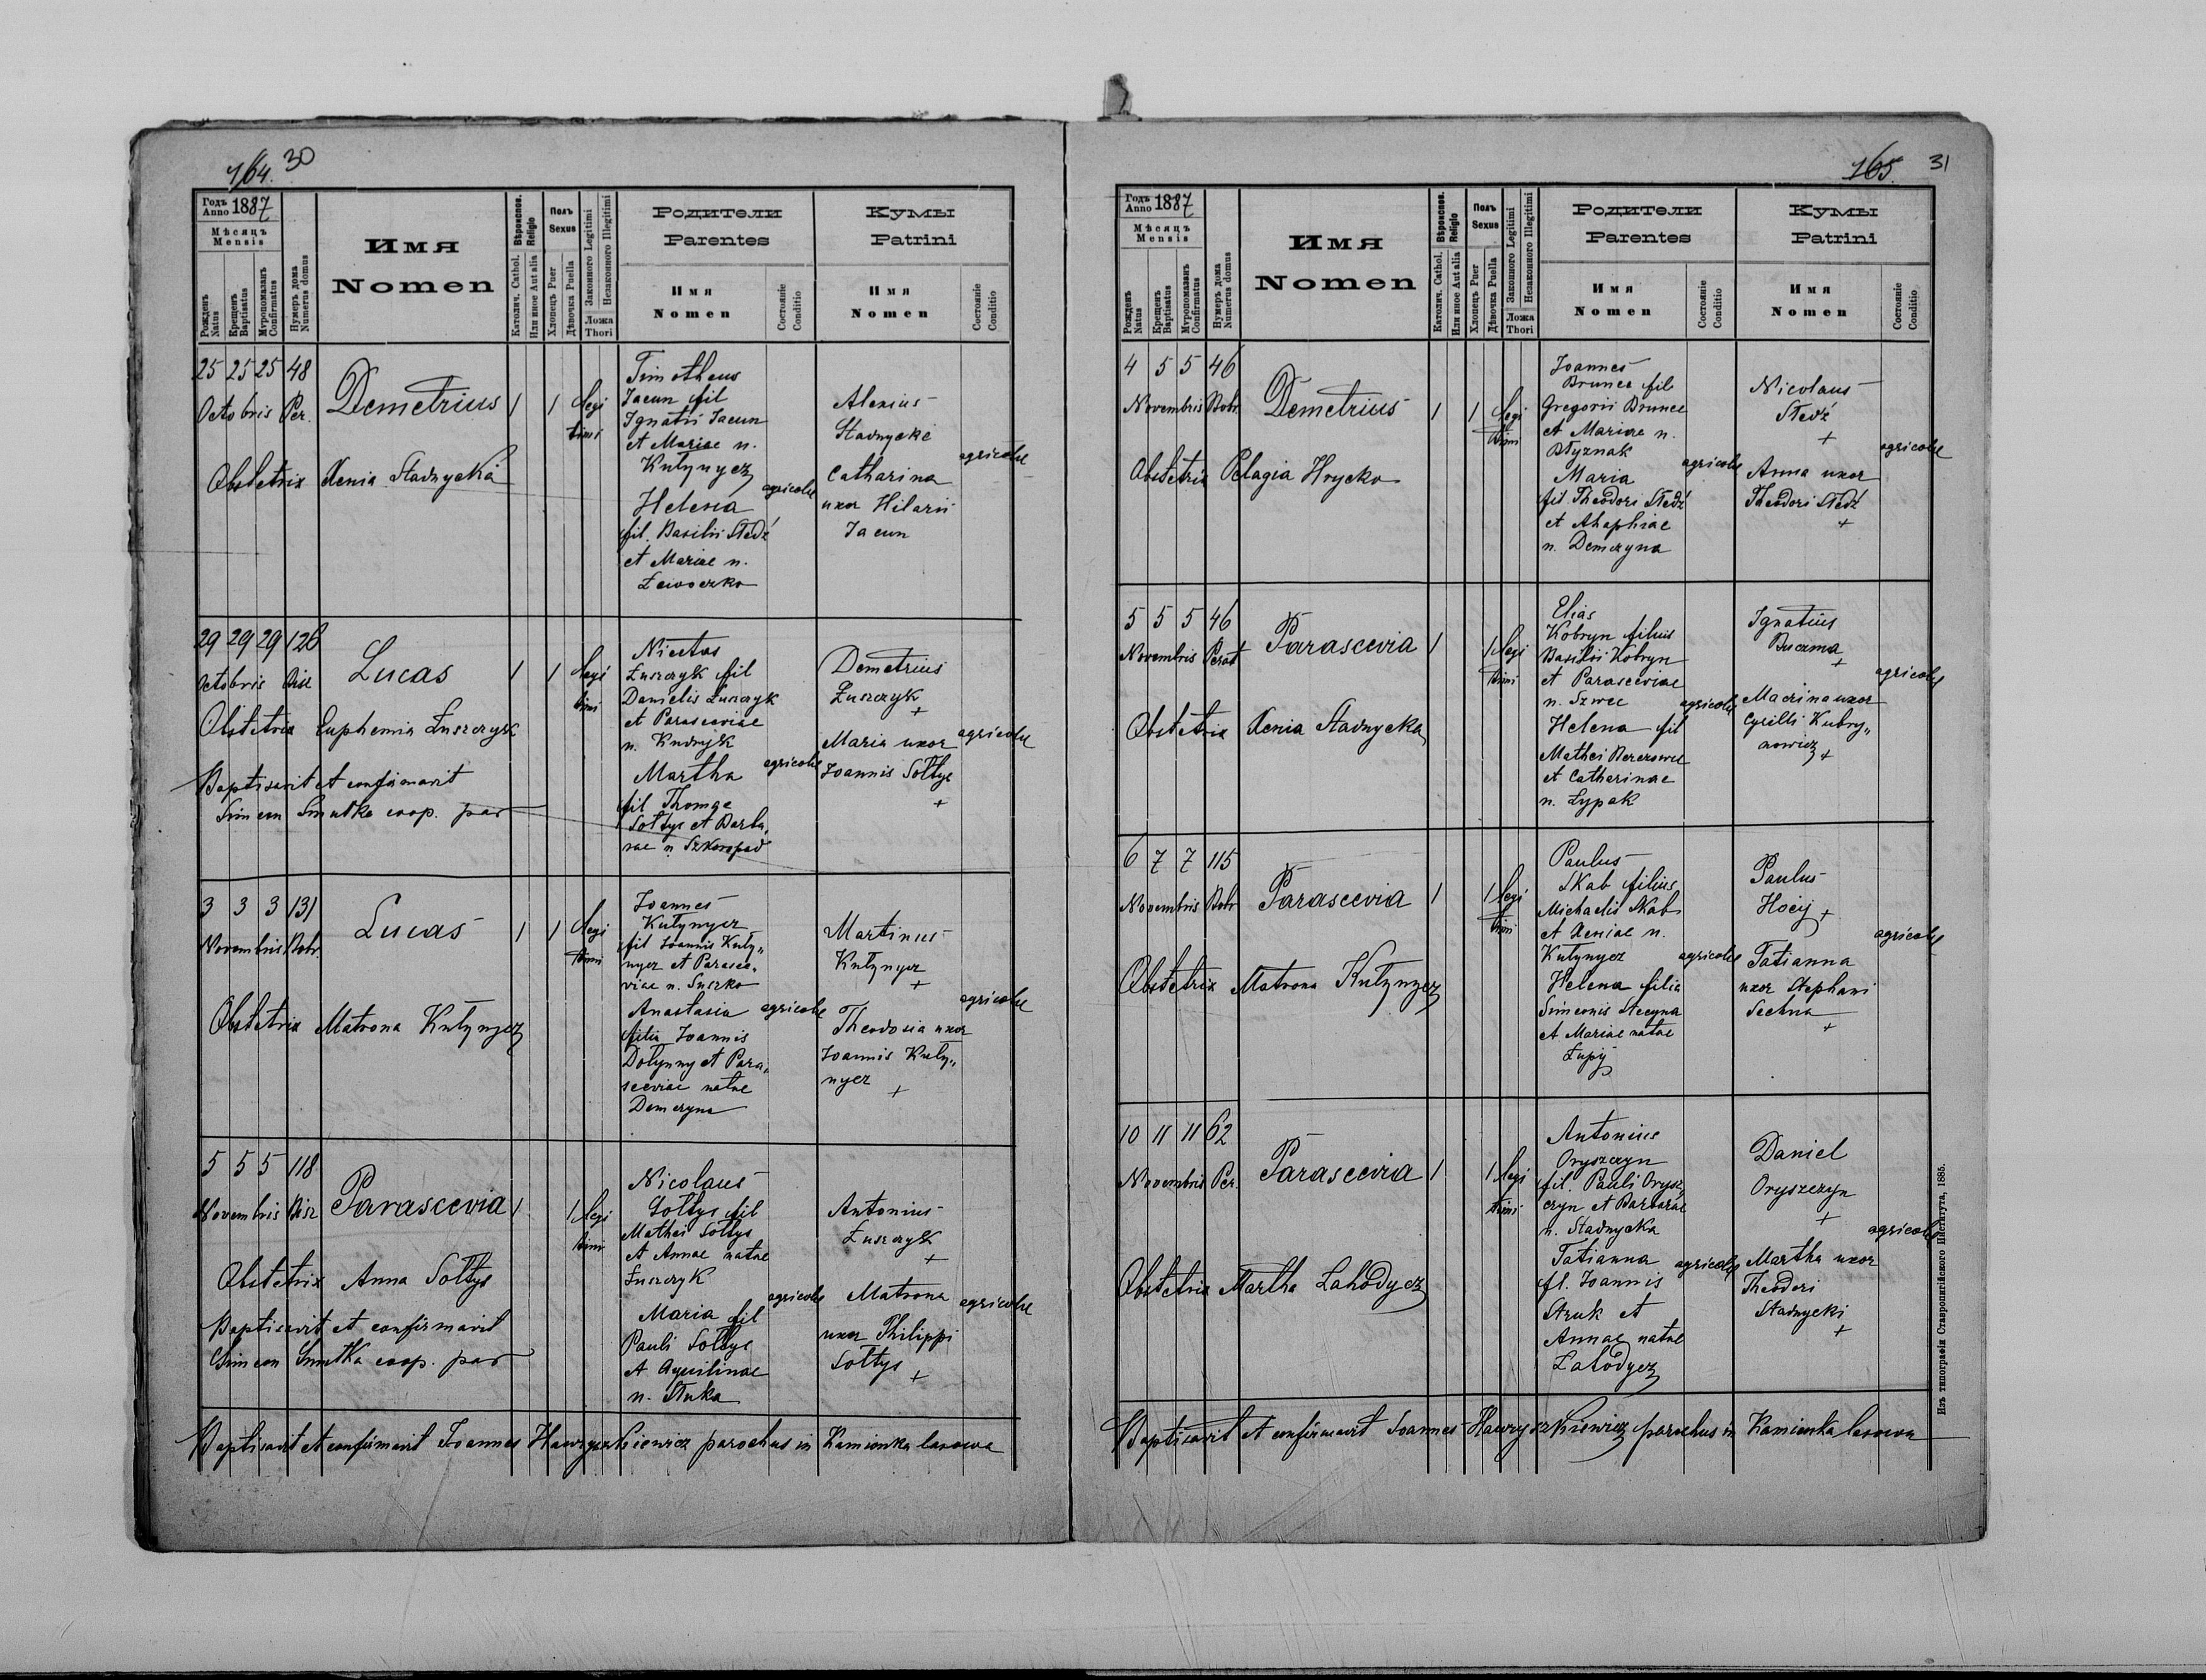 164. 30
Годъ Anno 1887
Мѣсяцъ
Mensis
Рожденъ Natus
Крещенъ Baptisatus
Муропомазанъ Confirmatus
Нумеръ дома Numerus domus
Имя
Nomen
Вѣроиспов. Religio
Католич. Cathol.
Или иное Aut alia
Полъ Sexus
Хлопецъ Puer
Дѣвочка Puella
Законного Legitimi
Незаконного Illegitimi
Ложа Thori
Родители
Parentes
Имя
Nomen
Состояніе Conditio
Кумы
Patrini
Имя
Nomen
Состояніе Conditio
25 25 25 48
Octobris Per.
Demetrius
1 1 Legi
timi
Timotheus
Jacun fil
Ignatii Jacun
et Mariae n.
Kutynycz
Helena
fil. Basilii Stedź
et Mariae n.
agricolae
Alexius
Stadnycki
Catharina
uxor Hilarii
Jacun
agricolae
Obstetrix Xenia Stadnycka
29 29 29 126
Octobris
Lucas
1 1 Legi
timi
Nicetas
Łuszczyk fil
Danielis Łuszczyk
et Parasceviae
n. Kudryk
Martha
fil Thomae
Sołtys et Barba„
rae n. Szkoropad
agricolae
Demetrius
Łuszczyk
+
Maria uxor
Joannis Sołtys
+
agricolae
Obstetrix Euphemia Łuszczyk
Baptisavit et confirmavit
Simeon Smutka coop. par
3 3 3 131
Novembris Bobr.
Lucas
1 1 Legi
timi
Joannes
Kutynycz
fil Joannis Kuty„
nycz et Parasce„
viae n. Suszko
Anastasia
filia Joannis
Dołynny et Para„
sceviae natae
Demczyna
agricolae
Martinus
Kutynycz
+
Theodosia uxor
Joannis Kuty„
nycz
+
agricolae
Obstetrix Matrona Kutynycz
5 5 5 118
Novembris
Parascevia
1 1 Legi
timi
Nicolaus
Sołtys fil
Mathei Sołtys
et Annae natae
Łuszczyk
Maria fil
Pauli Sołtys
et Aquilinae
n. Stuka
agricolae
Antonius
Łuszczyk
+
Matrona
uxor Philippi
Sołtys
+
agricolae
Obstetrix Anna Sołtys
Baptisavit et confirmavit
Simeon Smutka coop. par
Baptisavit et confirmavit Joannes Hawryszkiewicz parochus in Kamionka lasowa
165. 31
Годъ Anno 1887
Мѣсяцъ
Mensis
Рожденъ Natus
Крещенъ Baptisatus
Муропомазанъ Confirmatus
Нумеръ дома Numerus domus
Имя
Nomen
Вѣроиспов. Religio
Католич. Cathol.
Или иное Aut alia
Полъ Sexus
Хлопецъ Puer
Дѣвочка Puella
Законного Legitimi
Незаконного Illegitimi
Ложа Thori
Родители
Parentes
Имя
Nomen
Состояніе Conditio
Кумы
Patrini
Имя
Nomen
Состояніе Conditio
4 5 5 46
Novembris Bobr.
Demetrius
1 1 Legi
timi
Joannes
Brunec fil
Gregorii Brunec
et Mariae n.
Błyznak
Maria
fil Theodori Stedź
et Ahaphiae
n. Demczyna
agricolae
Nicolaus
Stedź
+
Anna uxor
Theodori Stedź
+
agricolae
Obstetrix Pelagia Hrycko
5 5 5 46
Novembris
Parascevia
1 1 Legi
timi
Elias
Kobryn filius
Basilii Kobryn
et Parasceviae
n. Szwec
Helena fil
Mathei
et Catharinae
n. Łypak
agricolae
Ignatius
Buczma
+
Macrina uxor
Cyrilli Kubry„
nowicz
+
agricolae
Obstetrix Xenia Stadnycka
6 7 7 115
Novembris Bobr
Parascevia
1 1 Legi
timi
Paulus
Skab filius
Michaelis Skab
et Xeniae n.
Kutynycz
Helena filia
Simeonis Stecyna
et Mariae natae
Łupij
agricolae
Paulus
Hocij +
Tatianna
uxor Stephani
Sectna
+
agricolae
Obstetrix Matrona Kutynycz
10 11 11 62
Novembris Per.
Parascevia
1 1 Legi
timi
Antonius
Oryszczyn
fil. Pauli Orysz„
czyn et Barbarae
n. Stadnycka
Tatianna
fil. Joannis
Struk et
Annae natae
Lahodycz
agricolae
Daniel
Oryszczyn
+
Martha uxor
Theodori
Stadnycki
+
agricolae
Obstetrix Martha Lahodycz
Baptisavit et confirmavit Joannes Hawryszkiewicz parochus in Kamionka lasowa
Изъ типографіи Ставропигійского Института, 1885.